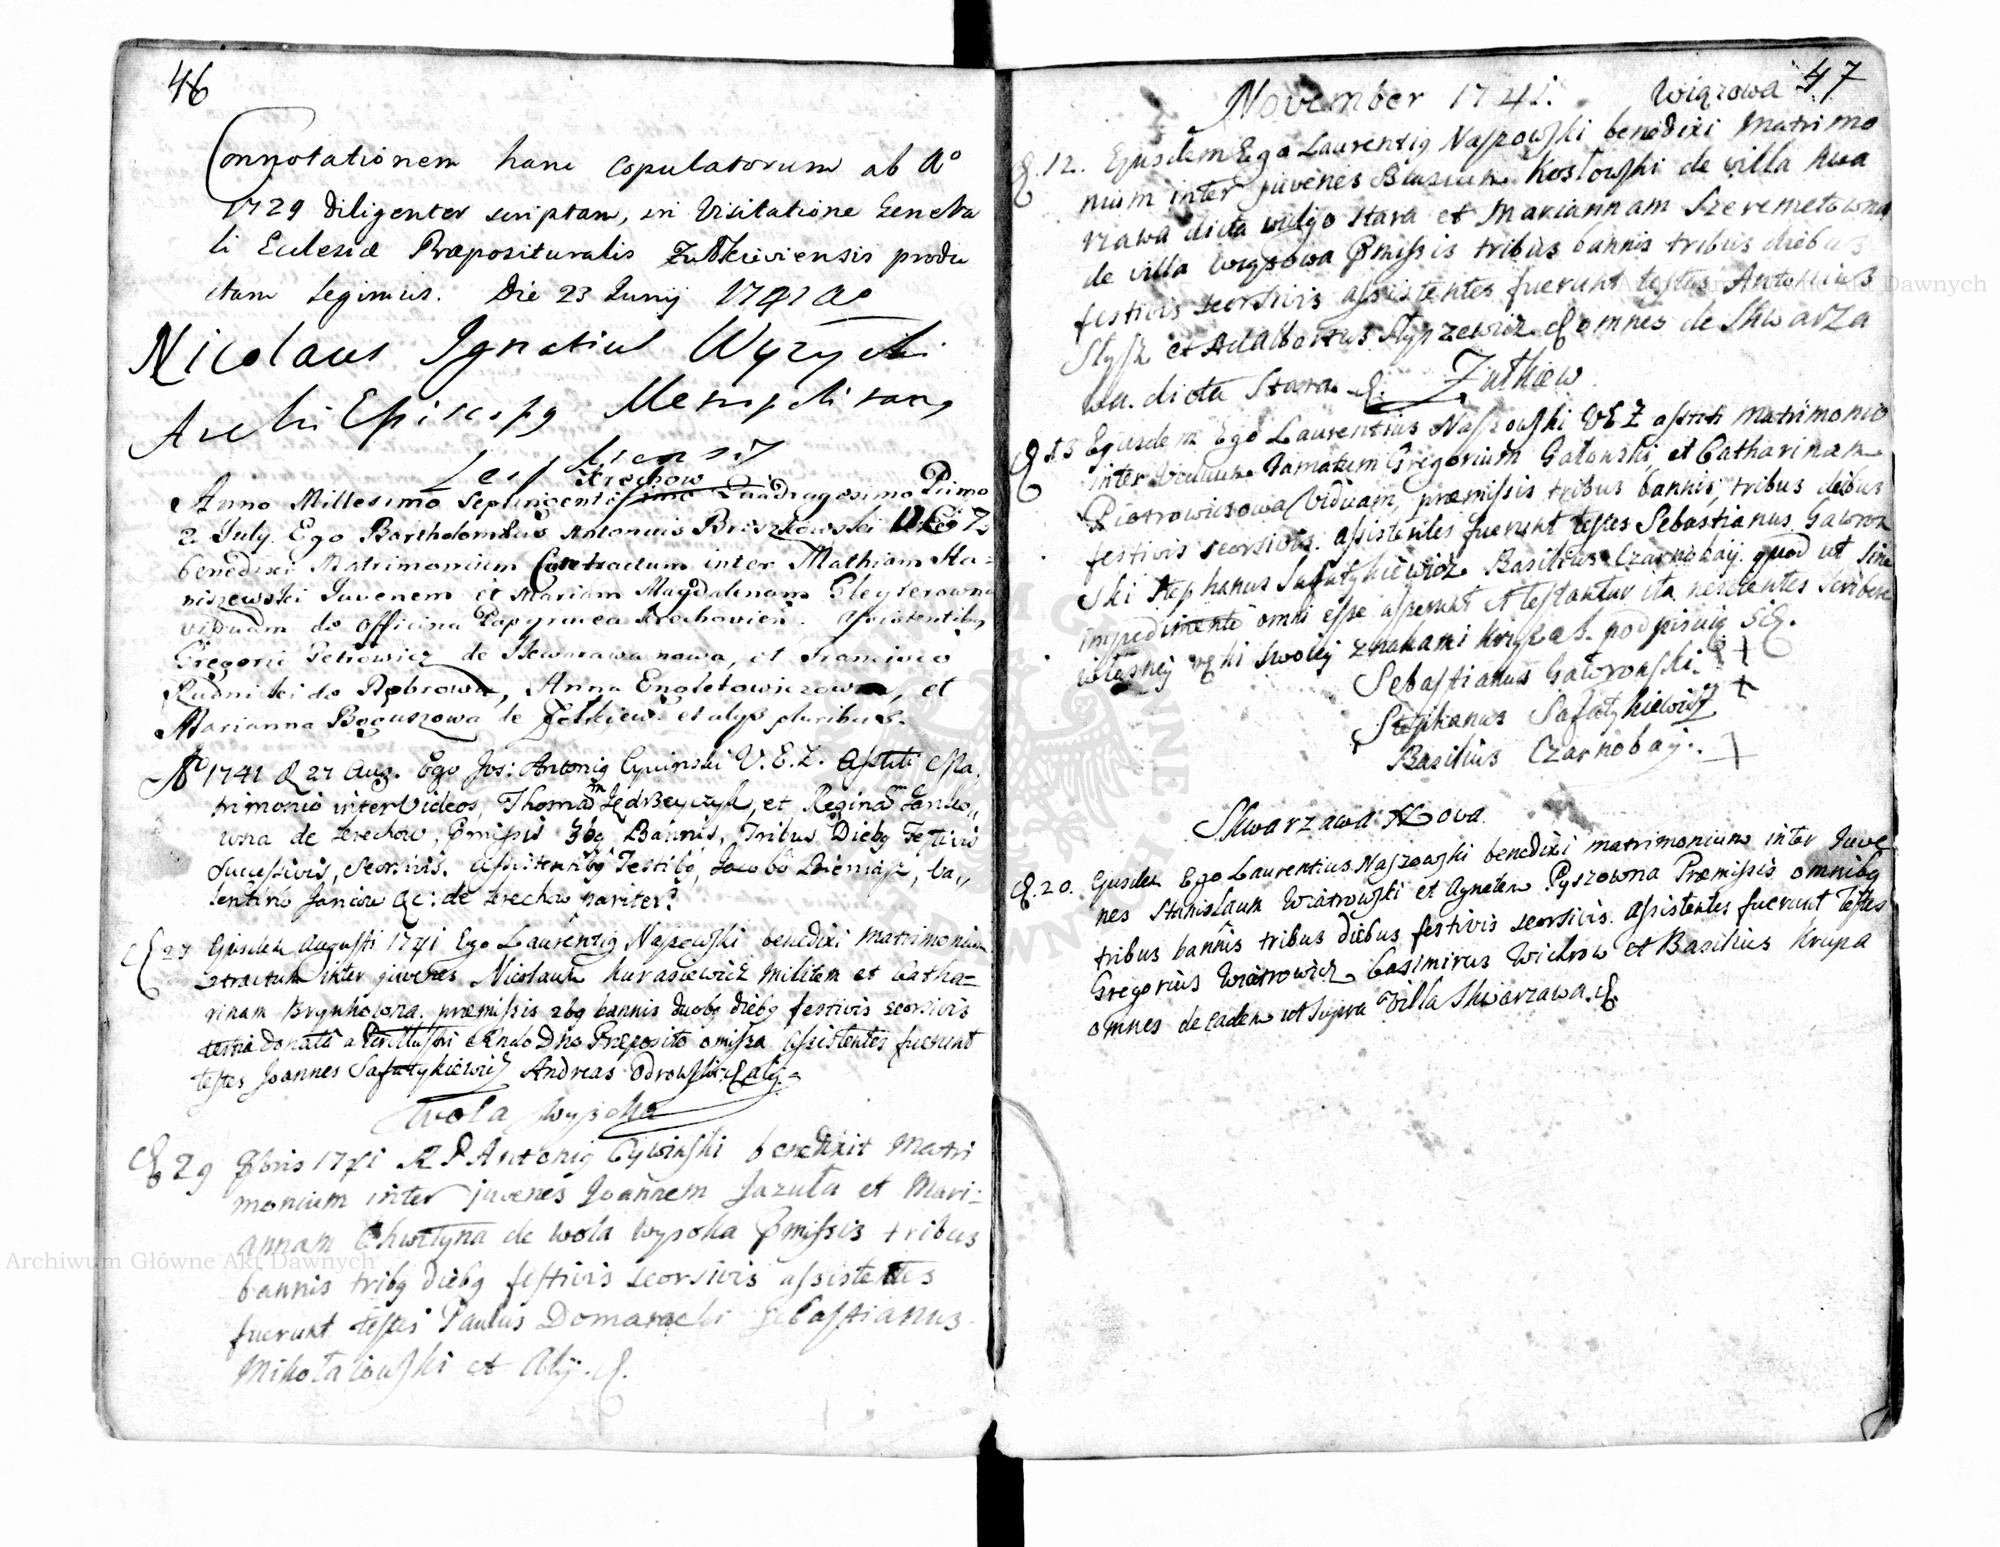 46
Connotationem hanc copulatorum ab Ao
1729 diligenter scriptam, in Visitatione Genera
li Eclesiæ Præposituralis Zulkieviensis produ
ctam legimus. Die 23 Junij 1741 Ao
Nicolaus Ignatius Wyzycki
Archi Episcopg Metropolitang
Leopoliensis
Krechow
Anno Millesimo Septingentesimo Quadragesimo Primo
2 July. Ego Bartholomæus Antonius Brzszkowski VEZ
benedixi Matrimonium Contractum inter Mathiam Sta=
niszewski Juvenem et Mariam Magdalenam Gleyterowna
viduam de Officina Papyrnea Krechovien. Assistentibg
Gregorio Petrowicz de Skwarawa nowa, et Francisco
Rudnicki de Dębrowa, Anna Engletowiczowna, et
Marianna Boguszowa de Zolkiew. et alys pluribus.
Ao 1741 d 27 Aug. Ego Jos: Antonig Cywinski V. E. Z. Astiti Ma,
trimonio inter Viduos, Thomam et Reginam Janko,
wna de Krechow, Pmissis 3bg Bannis, Tribus Diebg Festivis
Sucessivis, Seorsivis. Assistentibg Testibg, Jacobo Dziemaszk, Va,,
lentino Janiow &c: de Krechow pariter.
d 27 Ejusdem Augusti 1741 Ego Laurentig Naszowski benedixi Matrimonium
ctractum inter juvenes Nicolaum Kurasiewicz militem et Catha=
rinam Brynkowna. præmissis 2bg bannis duobg diebg festivis seorsivis
tertia donata a Perillustri Rndo Dno Preposito omissa Assistentes fuerunt
testes Joannes Safatykiewicz Andreas Odrowski & alij.
Wola wysoka
d 29 8bris 1741 R P Antonig Cywinski benedixit Matri
monium inter juvenes Joannem Jazuta et Mari=
annam Chwetyna de wola wysoka Pmissis tribus
bannis tribg diebg festivis seorsivis assistentes
fuerunt testes Paulus Domaracki Sebastianus
Mikotatowski et Alij. &.
November 1741. Wiązowa 47
d. 12. Ejusdem Ego Laurentig Naszowski benedixi Matrimo
nium inter juvenes Blasium Kostowski de villa Skwa
rzawa dicta vulgo Stara et Mariannam Szeremetowna
de villa Wiązowa Pmissis tribus bannis tribus diebus
festivis seorsivis assistentes fuerunt testes Antonius
Stysz et Adalbertus Styszewicz & omnes de Skwarza
wa. dicta Stara. &.
Zutkiew
d 13 Ejusdem Ego Laurentius Naszowski VEZ astiti Matrimonio
inter Viduum Famatum Gregorium Gatowski, et Catharinam
Piotrowiczowa Viduam, præmissis tribus bannis, tribus diebus
festivis seorsivis. Assistentes fuerunt testes Sebastianus Gawron
ski Stephanus Safatykiewicz Basilius Czarnobay. quod ut sine
impedimento omni esse asserunt et testantur ita nescientes scribere
własnij ręki swoiey znakami krzyza S. podpisuią się.
Sebastianus Gawronski. +
Stephanus Safatykiewicz +
Basilius Czarnobay. +
Skwarzawa Nova
d. 20. Ejusdem Ego Laurentius Naszowski benedixi matrimonium inter Juve
nes Stanislaum Wiatrowski et Agnetem Pyszowna Præmissis omnibg
tribus bannis tribus diebus festivis seorsivis. Assistentes fuerunt Testes
Gregorius Wiatrowicz Casimirus Wichrow et Basilius Krupa
omnes de eadem ut supra Villa Skwarzawa. &.
Archiwum Główne Akt Dawnych
Archiwum Główne Akt Dawnych